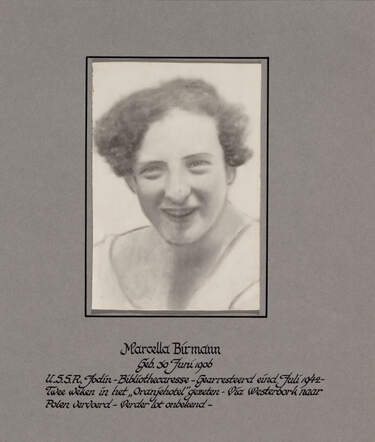 Marcella Birmann
Geb. 30 Juni 1906
U.S.S.R. Jodin - Bibliothecaresse - Gearresteerd eind Juli 1942 -
Twee weken in het „Oranjehotel" gezeten - Via Westerbork naar
Polen vervoerd - Verder lot onbekend -